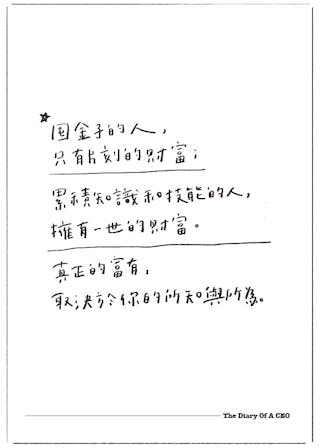 囤金子的人，
只有片刻的財富；
累積知識和技能的人，
擁有一世的財富。
真正的富有，
取決於你的所知與所為。
The Diary Of A CEO